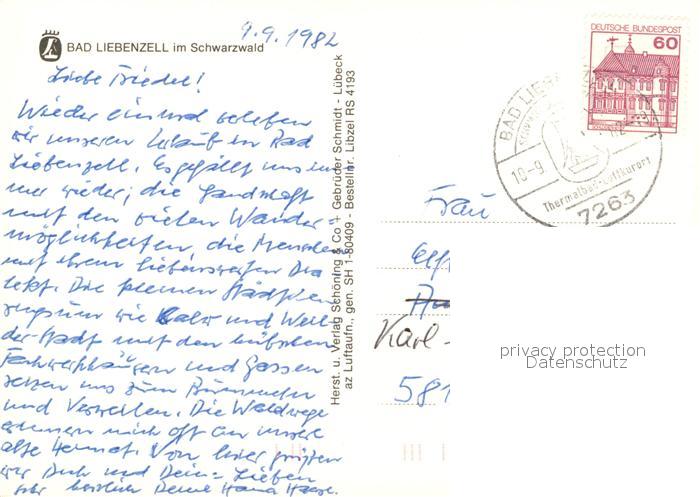 9.9.1982
BAD LIEBENZELL im Schwarzwald
Liebe Friedel!
Wieder einmal erleben
wir unseren Urlaub in Bad
Liebenzell. Es gefällt uns im
mer wieder; die Landschaft
mit den vielen Wander-
möglichkeiten, die Menschen
mit ihrem liebenswerten Dia
lekt. Die kleinen Städtchen
ringsum wie Calw und Weil
der Stadt mit den hübschen
Fachwerkhäusern und Gassen
reizen uns zum Bummeln
und Verweilen. Die Waldwege
erinnern mich oft an unsere
alte Heimat. Von hier grüßen
wir Dich und Deine Lieben
sehr herzlich Deine Hanna
Herst. u. Verlag Schöning & Co + Gebrüder Schmidt - Lübeck
az Luftaufn., gen. SH 1-80409 - Bestellnr. Libzel RS 4193
DEUTSCHE BUNDESPOST
60
BAD LIEB
10-9
Thermalbad-Luftkurort
7263
Frau
Karl-
581
privacy protection
Datenschutz